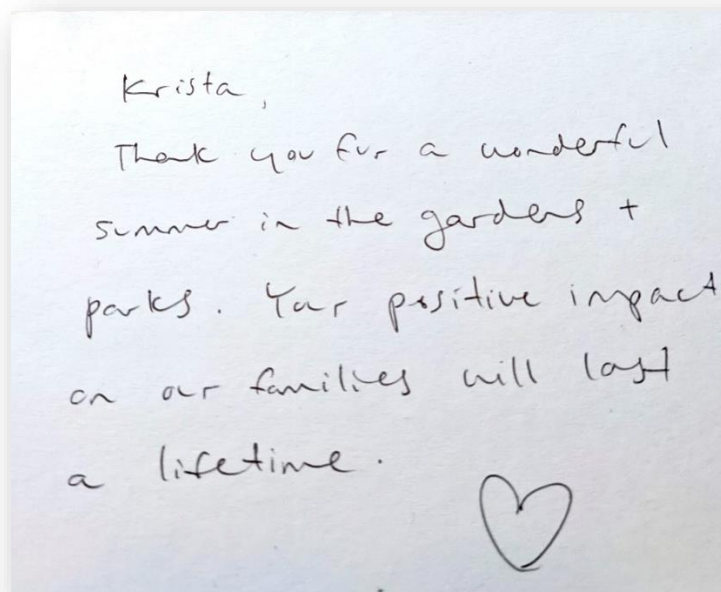 Krista,
Thank you for a wonderful
summer in the gardens +
parks. Your positive impact
on our families will last
a lifetime.